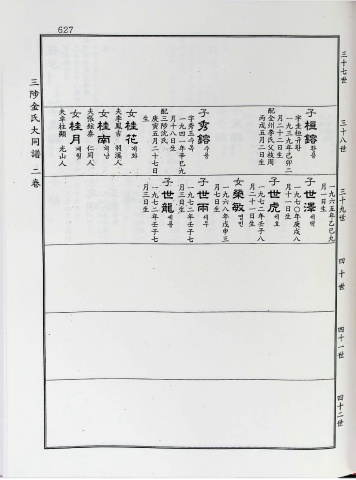 627
三陟金氏大同譜 二卷
三十七世
三十八世
三十九世
四十世
四十一世
四十二世
子 桓鎔 환용
一九三九年己卯二
月二十二日生
配全州李氏父枝周
丙戌五月二日生
子 秀鎔 수용
字秀玉수옥
一九四一年辛巳九
月十八日生
配三陟沈氏
庚寅五月二十七日
生
女 桂花 계화
夫李鳳吉 羽溪人
女 桂南 계남
夫張鉉泰 仁同人
女 桂月 계월
夫卓柱顯 光山人
一九六五年乙巳九
月一日生
子 世澤 세택
一九七〇年庚戌八
月十一日生
子 世虎 세호
一九七二年壬子八
月二十一日生
女 榮敏 영민
一九六八年戊申三
月七日生
子 世雨 세우
一九七二年壬子七
月三日生
子 世龍 세룡
一九七二年壬子七
月三日生